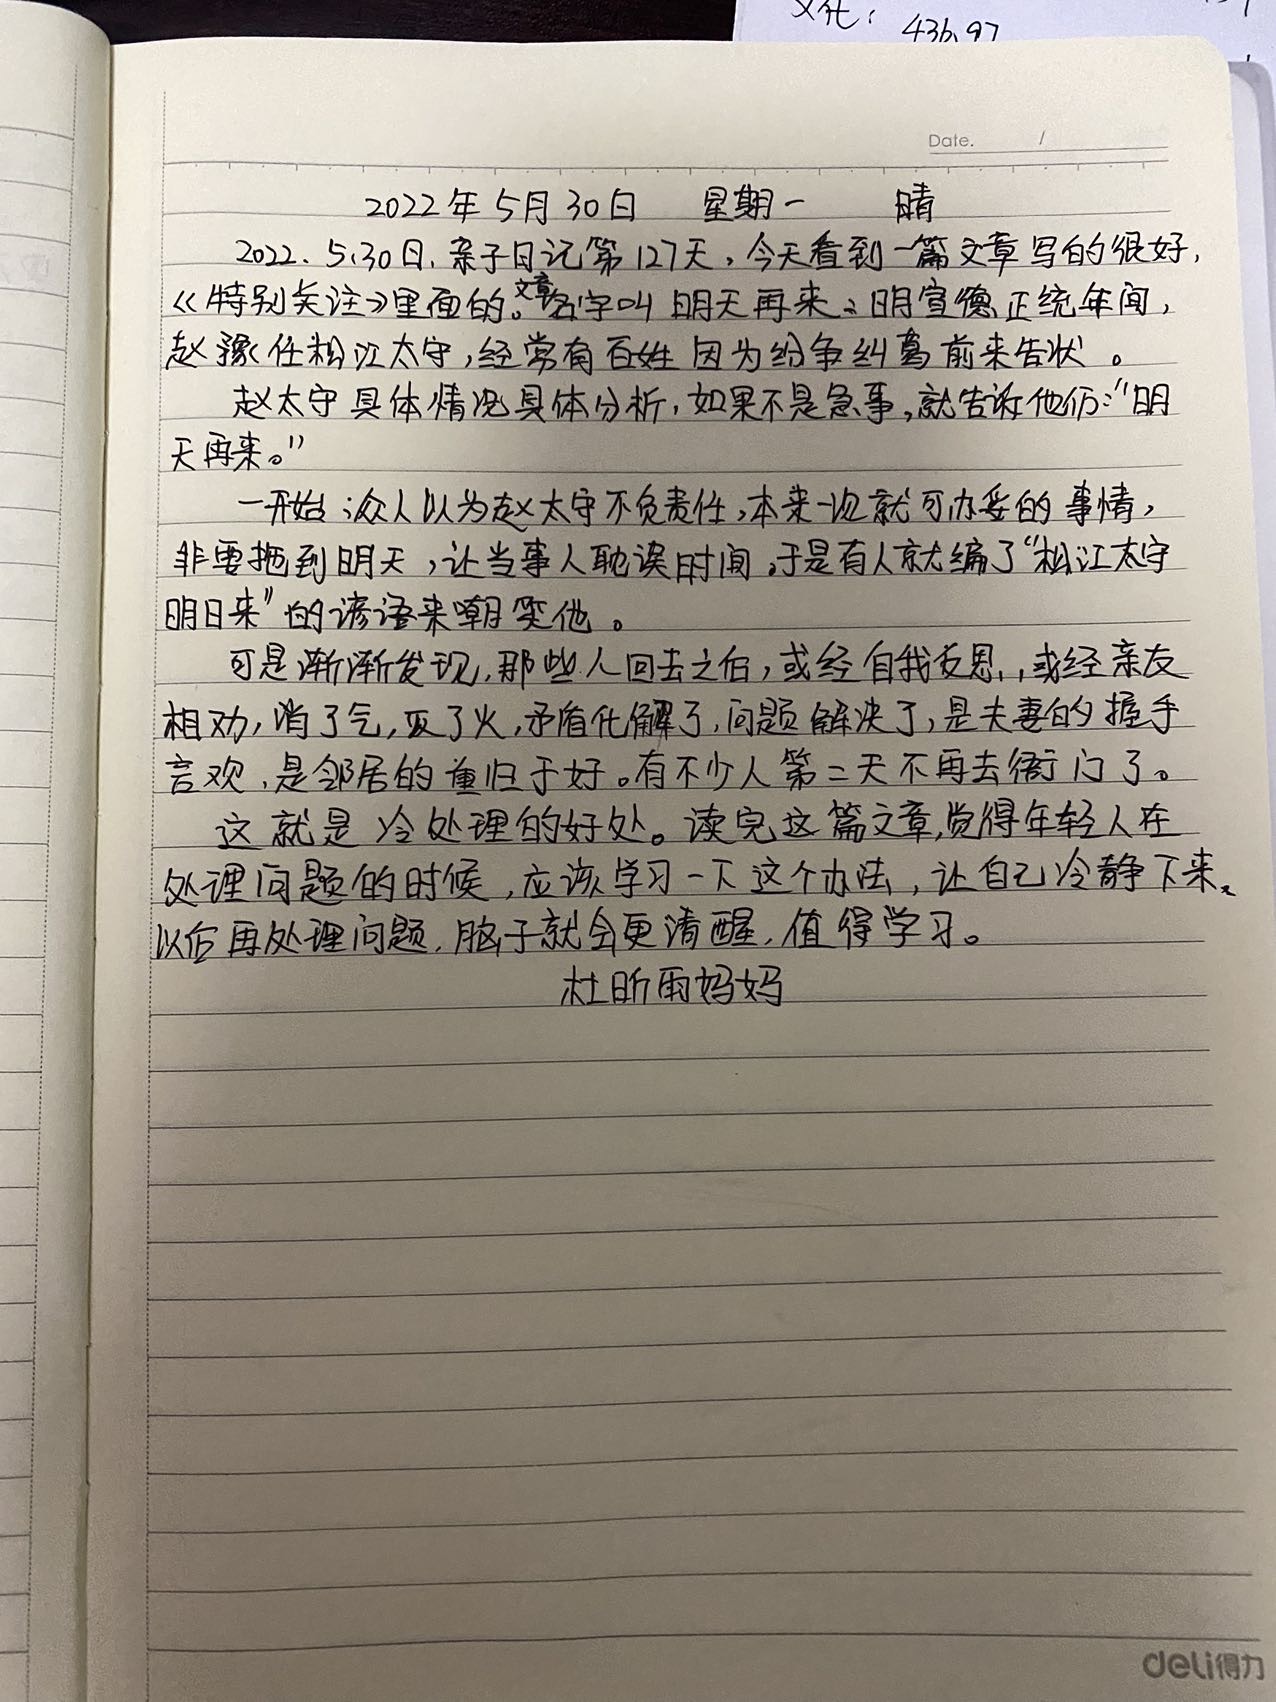 文化：
436.97
Date. /
2022年5月30日 星期一 晴
2022.5.30日.亲子日记第127天，今天看到一篇文章写的很好，
《特别关注》里面的。文章名字叫 明天再来。明宣德正统年间，
赵豫任松江太守，经常有百姓因为纷争纠葛前来告状。
赵太守具体情况具体分析，如果不是急事，就告诉他们：“明
天再来。”
一开始，众人以为赵太守不负责任，本来一次就可办妥的事情，
非要拖到明天，让当事人耽误时间，于是有人就编了“松江太守
明日来”的谚语来嘲笑他。
可是渐渐发现，那些人回去之后，或经自我反思，或经亲友
相劝，消了气，灭了火，矛盾化解了，问题解决了，是夫妻的握手
言欢，是邻居的重归于好。有不少人第二天不再去衙门了。
这就是冷处理的好处。读完这篇文章，觉得年轻人在
处理问题的时候，应该学习一下这个办法，让自己冷静下来，
以后再处理问题，脑子就会更清醒，值得学习。
杜昕雨妈妈
deli得力